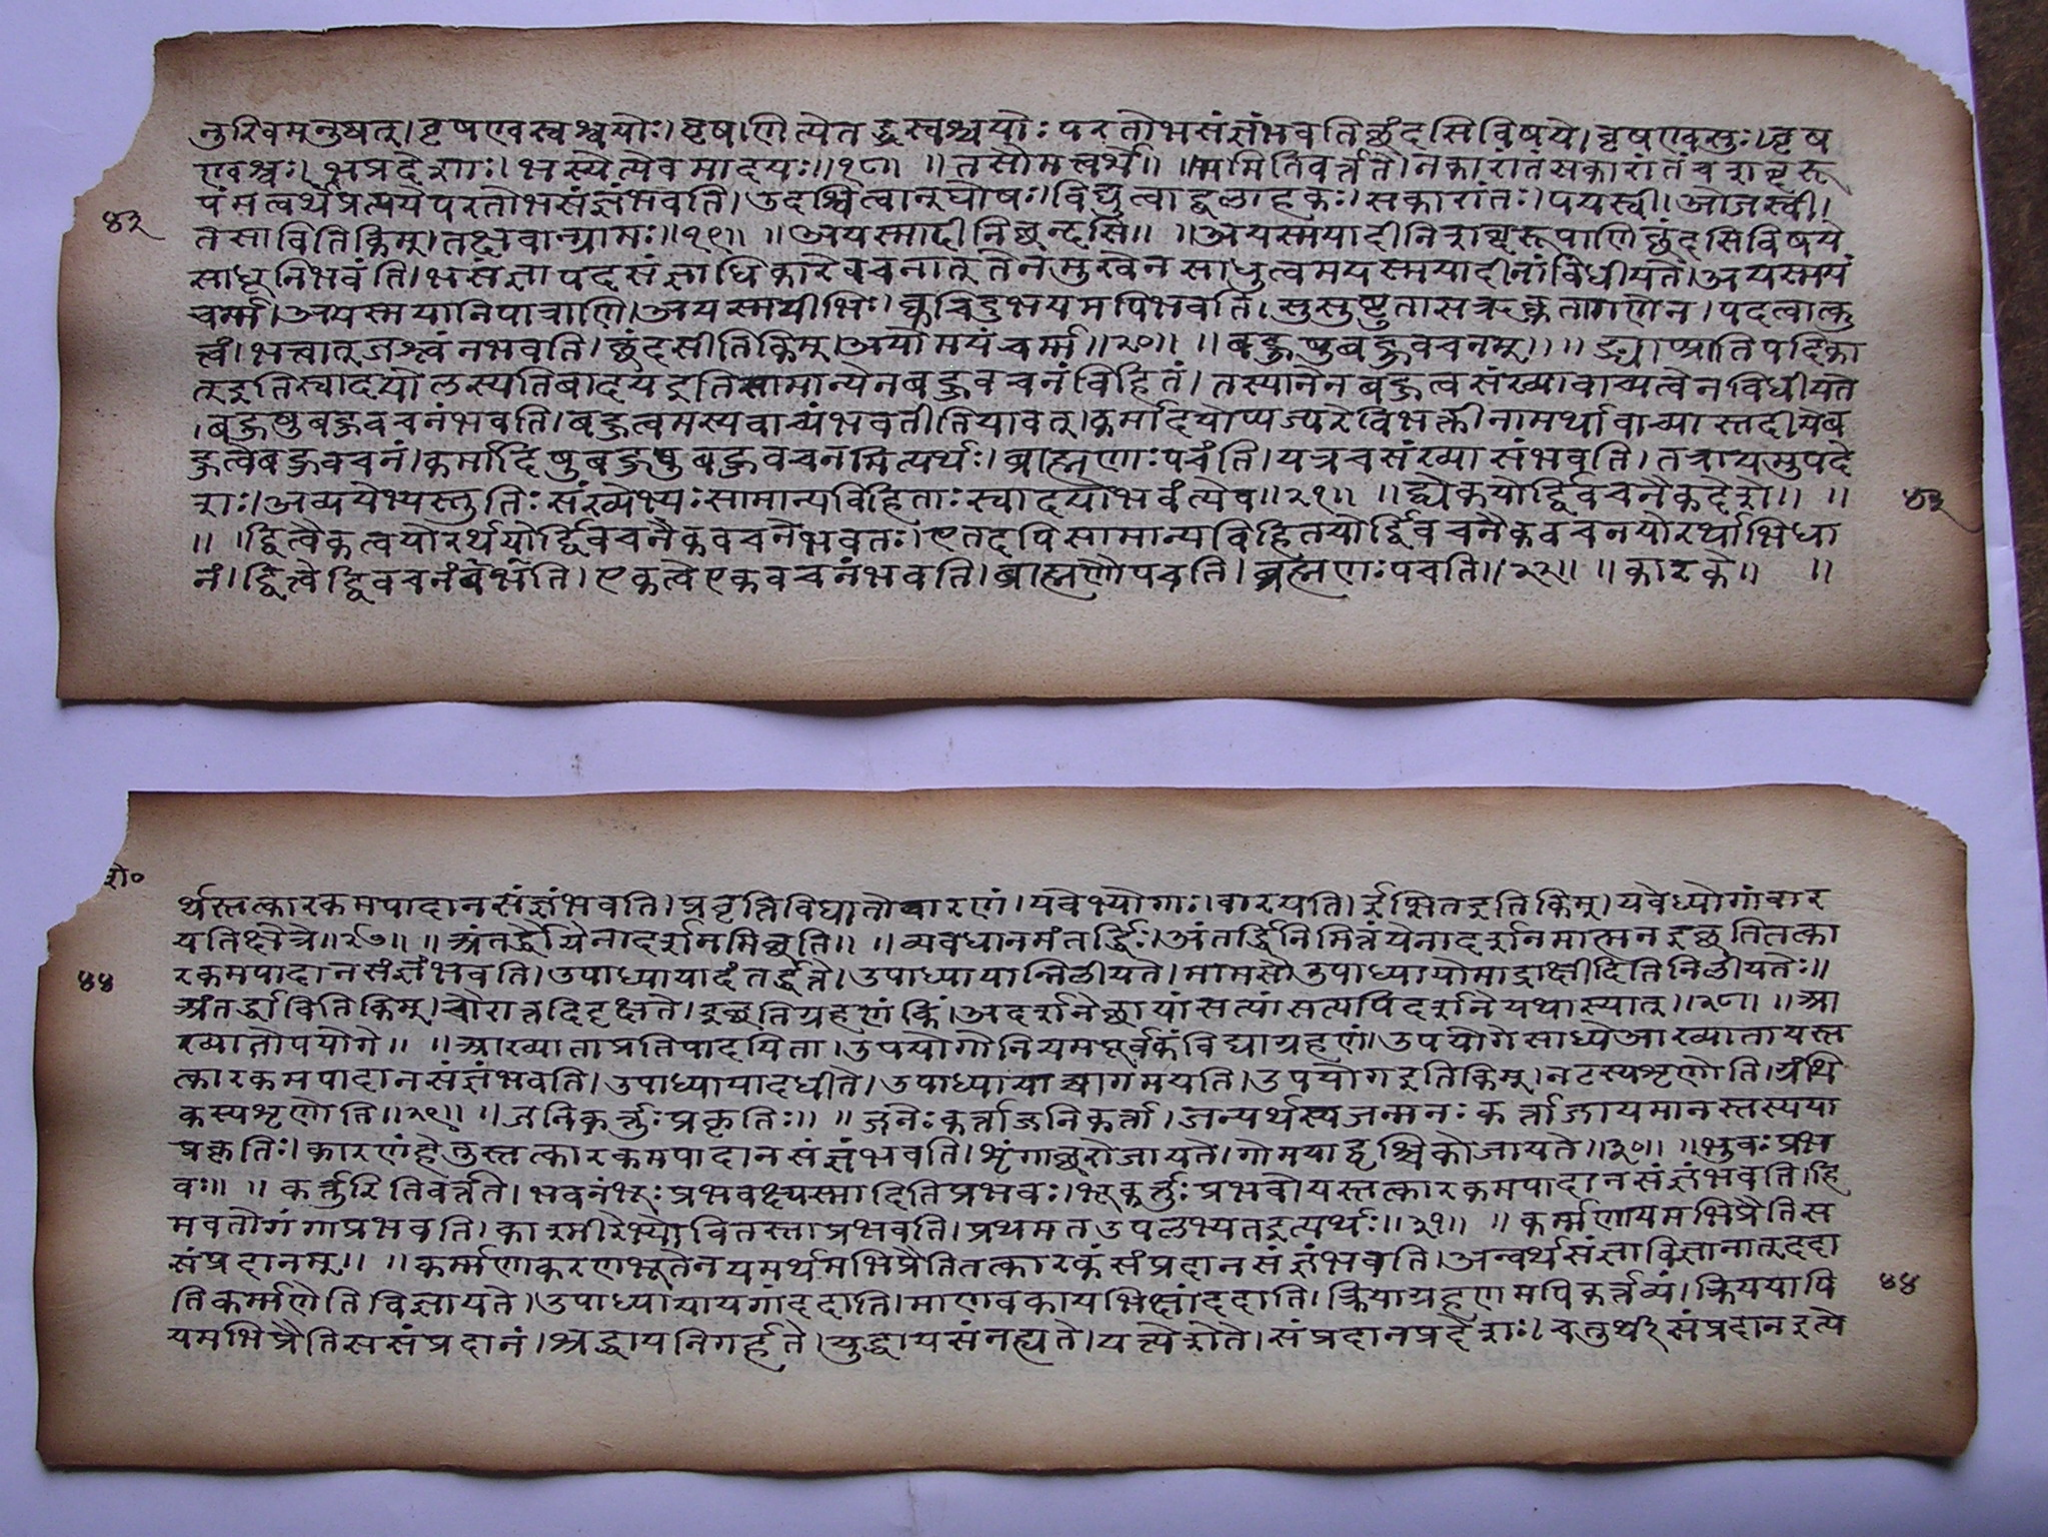 नुरिवमनुषत्।वृषण्वस्वश्वयोः।वृषणित्येतद्वस्वश्वयोःपरतोभसंज्ञंभवतिछंदसिविषये।वृषण्वसुः।वृष
ण्वश्वः।भप्रदेशाः।भस्येत्येवमादयः॥१८॥ ॥तसौमत्वर्थे॥ ॥भमितिवर्त्तते।नकारातसकारांतंचशब्दरू
पंमत्वर्थेप्रत्ययेपरतोभसंज्ञंभवति।उदश्वित्वान्घोषः।विद्युत्वाद्बलाहकः।सकारांतः।पयस्वी।ओजस्वी।
४३
तसावितिकिम्।तक्षवान्ग्रामः॥१९॥ ॥अयस्मादीनिछन्दसि॥ ॥अयस्मयादीनिशब्दरूपाणिछंदसिविषये
साधूनिभवंति।भसंज्ञापदसंज्ञाधिकारेवचनात्तेनमुखेनसाधुत्वमयस्मयादीनांविधीयते।अयस्मयं
चर्म्म।अयस्मयानिपात्राणि।अयस्मयीभिः।क्वचिदुभयमपिभवति।सुसुष्टुतासऋक्वतागणेन।पदत्वात्कु
त्वं।भत्वात्जश्त्वंनभवति।छंदसीतिकिम्।अयोमयंचर्म्म॥२०॥ ॥बहुषुबहुवचनम्॥ ॥ङ्याप्प्रातिपदिका
त्इतिस्वादयोलस्यतिबादयइतिसामान्येनबहुवचनंविहितं।तस्यानेनबहुत्वसंख्यावाच्यत्वेनविधीयते
।बहुषुबहुवचनंभवति।बहुत्वमस्यवाच्यंभवतीतियावत्।कर्मादयोप्यपरेविभक्तीनामर्थावाच्यास्तदीयेब
हुत्वेबहुवचनं।कर्मादिषुबहुषुबहुवचनमित्यर्थः।ब्राह्मणाःपचंति।यत्रचसंख्यासंभवति।तत्रायमुपदे
शः।अव्ययेभ्यस्तुनिःसंख्येभ्यःसामान्यविहिताःस्वादयोभवंत्येव॥२१॥ ॥द्व्येकयोर्द्विवचनैकदेशे॥ ॥
४३
॥ ।द्वित्वैकत्वयोरर्थयोर्द्विवचनैकवचनेभवतः।एतदपिसामान्यविहितयोर्द्विवचनैकवचनयोरर्थाभिधा
नं।द्वित्वेद्विवचनंवंभति।एकत्वेएकवचनंभवति।ब्राह्मणौपचति।ब्रह्मणःपचति॥२२॥ ॥कारके॥ ॥
शे०
र्थस्तत्कारकमपादानसंज्ञंभवति।प्रवृत्तिविघातोवारणं।यवेभ्योगाः।वारयति।ईप्सितइतिकिम्।यवेध्योगांवार
यतिक्षेत्रे॥२७॥ ॥अंतर्द्धौयेनादर्शनमिच्छति॥ ॥व्यवधानमंतर्द्धिः।अंतर्द्धिनिमित्तंयेनादर्शनमात्मनइछतितत्का
४४
रकमपादानसंज्ञंभवति।उपाध्यायादंतर्द्धत्ते।उपाध्यायान्निलीयते।मामसौउपाध्यायोमाद्राक्षीदितिनिलीयतेः॥
अंतर्द्धावितिकिम्।चौरान्नदिदृक्षते।इच्छतिग्रहणंकिं।अदर्शनेछायांसत्यांसत्यपिदर्शनेयथास्यात्॥२८॥ ॥आ
ख्यातोपयोगे॥ ॥आख्याताप्रतिपादयिता।उपयोगोनियमपूर्वकंविद्याग्रहणं।उपयोगेसाध्येआख्यातायस्त
त्कारकमपादानसंज्ञंभवति।उपाध्यायादधीते।उपाध्यायाच्चागमयति।उपयोगइतिकिम्।नटस्यशृणोति।ग्रंथि
कस्यशृणोति॥२९॥ ॥जनिकर्त्तुःप्रकृतिः॥ ॥जनेःकर्त्ताजनिकर्ता।जन्यर्थस्यजन्मनःकर्त्ताजायमानस्तस्यया
प्रकृतिः।कारणंहेतुस्तत्कारकमपादानसंज्ञंभवति।शृंगाछरोजायते।गोमयाद्वृश्चिकोजायते॥३०॥ ॥भुवःप्रभ
वः॥ ॥कर्त्तुरितिवर्त्तते।भवनंभूःप्रभवक्ष्यस्मादितिप्रभवः।भूकर्त्तुःप्रभवोयस्तत्कारकमपादानसंज्ञंभवति।हि
मवतोगंगाप्रभवति।काश्मीरेभ्योवितस्ताप्रभवति।प्रथमतउपलभ्यतइत्यर्थः॥३१॥ ॥कर्म्मणायमभिप्रैतिस
संप्रदानम्॥ ॥कर्म्मणाकरणभूतेनयमर्थमभिप्रैतितत्कारकंसंप्रदानसंज्ञंभवति।अन्वर्थसंज्ञाविज्ञानात्ददा
तिकर्म्मणेतिविज्ञायते।उपाध्यायायगांददाति।माणवकायभिक्षांददाति।क्रियाग्रहणमपिकर्त्तव्यं।क्रिययापि
४४
यमभिप्रैतिससंप्रदानं।श्रद्धायनिगर्हते।युद्धायसंनह्यते।यत्येशेते।संप्रदानप्रदेशाः।चतुर्थीसंप्रदानइत्ये